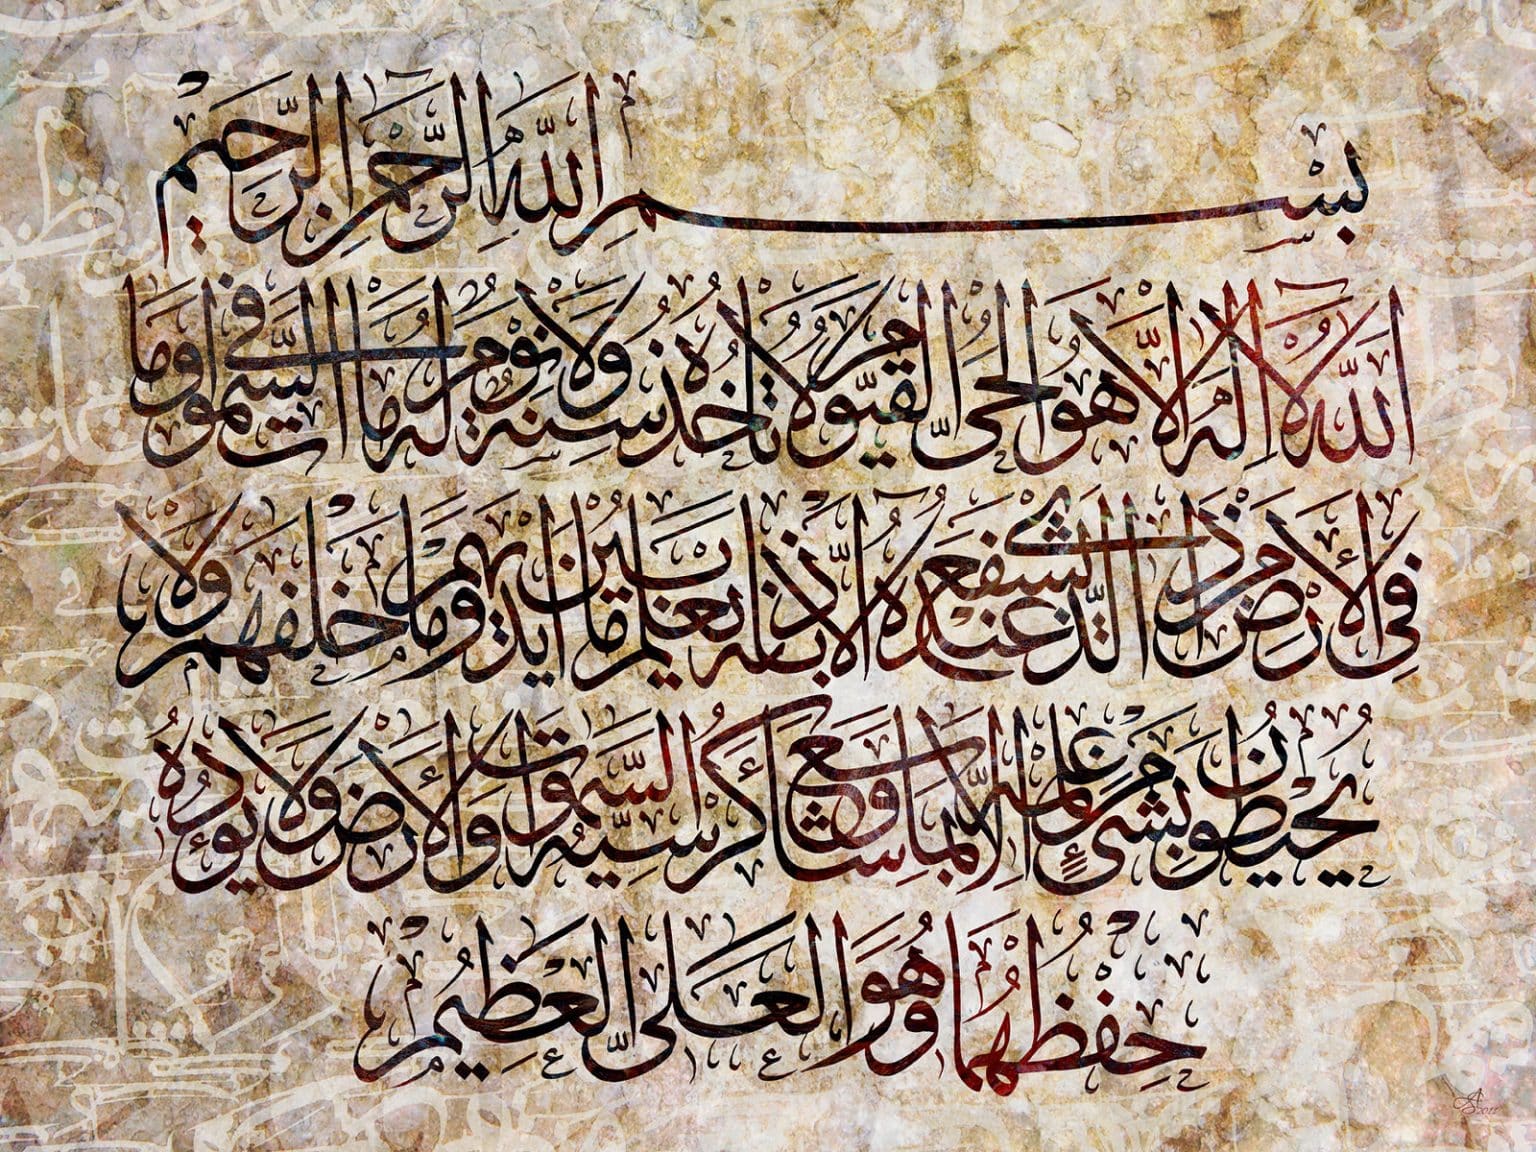 بِسْمِ اللهِ الرَّحْمٰنِ الرَّحِيْمِ
اَللهُ لَا اِلٰهَ اِلَّا هُوَ الْحَىُّ الْقَيُّوْمُ لَا تَأْخُذُهُ سِنَةٌ وَلَا نَوْمٌ لَهُ مَا فِى السَّمٰوَاتِ وَمَا
فِى الْأَرْضِ مَنْ ذَا الَّذِى يَشْفَعُ عِنْدَهُ اِلَّا بِاِذْنِهِ يَعْلَمُ مَا بَيْنَ اَيْدِيْهِمْ وَمَا خَلْفَهُمْ وَلَا
يُحِيْطُوْنَ بِشَىْءٍ مِنْ عِلْمِهِ اِلَّا بِمَا شَاءَ وَسِعَ كُرْسِيُّهُ السَّمٰوَاتِ وَالْأَرْضَ وَلَا يَؤُدُهُ
حِفْظُهُمَا وَهُوَ الْعَلِىُّ الْعَظِيْمُ